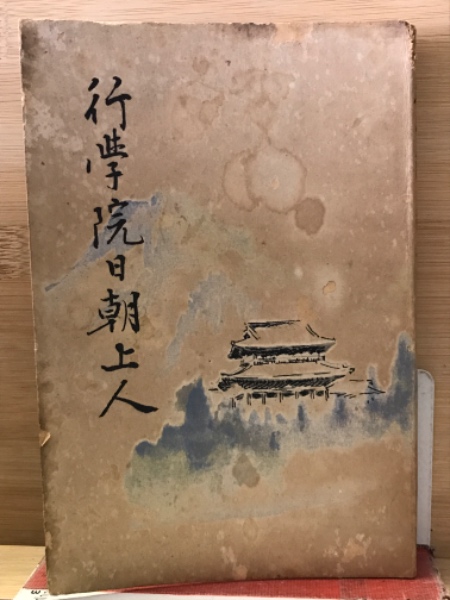 行学院日朝上人